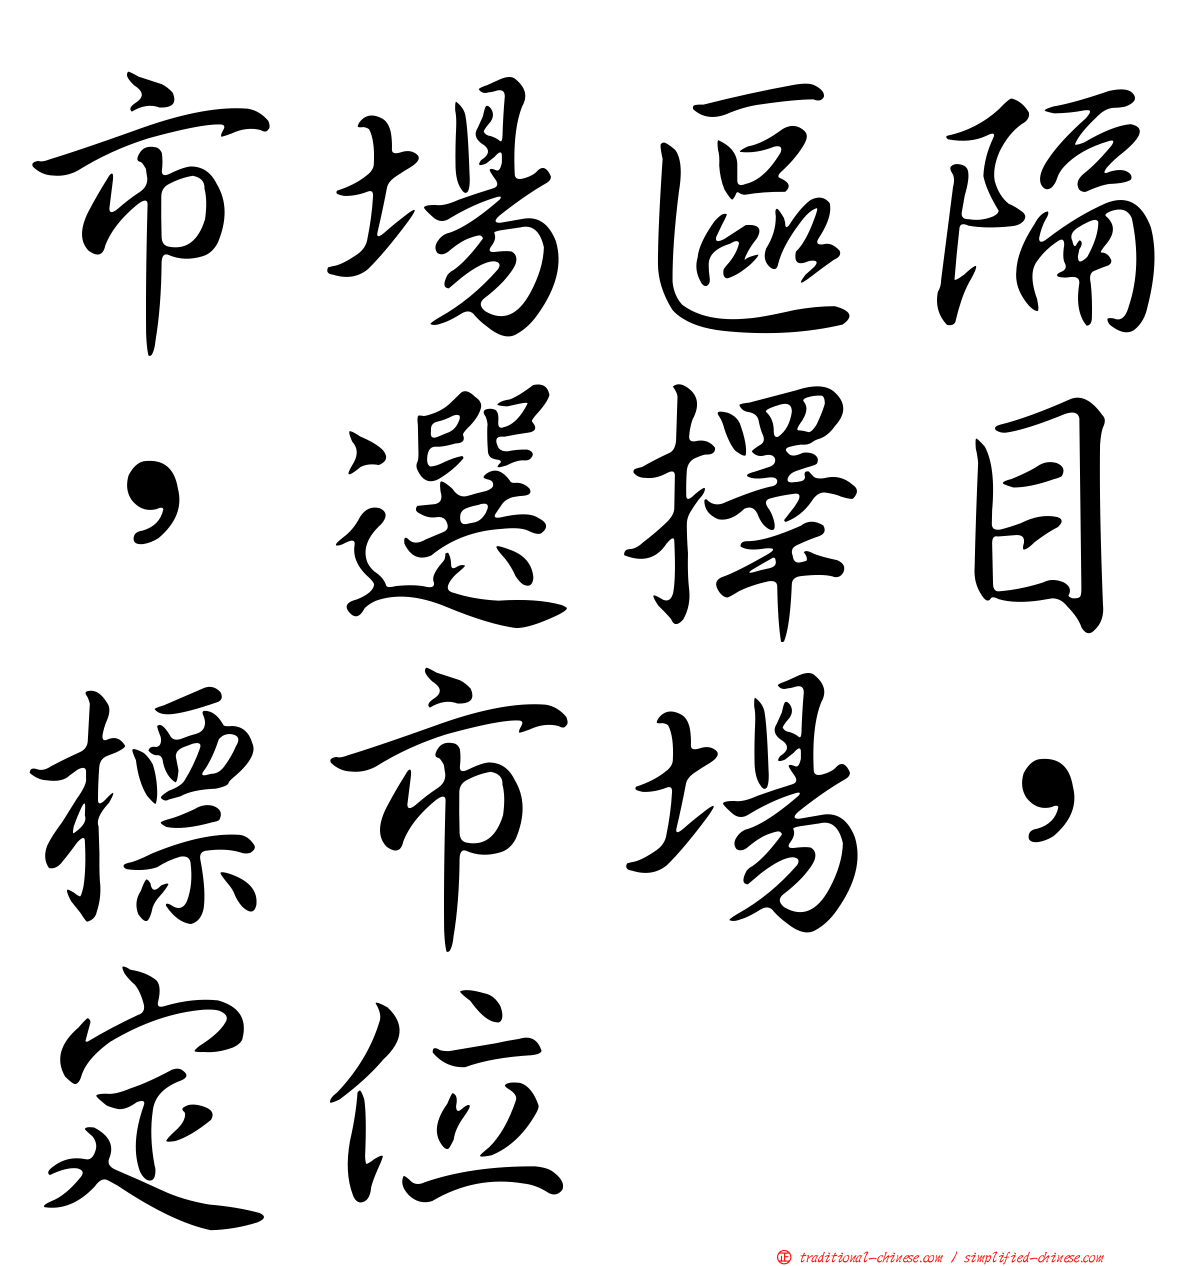 市場區隔
，選擇目
標市場，
定位
正 traditional-chinese.com / simplified-chinese.com